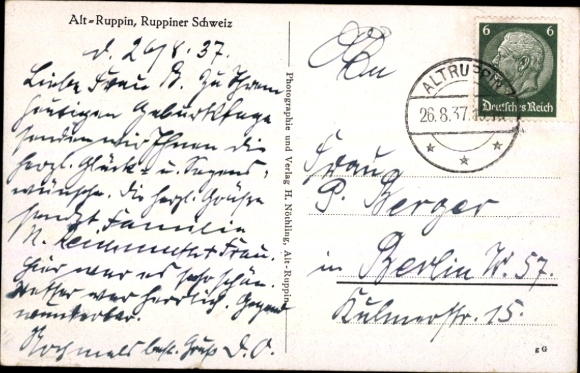 Alt-Ruppin, Ruppiner Schweiz
d. 26/8. 37.
Liebe Frau B. Zu Ihrem
heutigen Geburtstage
senden wir Ihnen die
herzl. Glück- u. Segens-
wünsche. Die herzl. Grüße
sendet Familie
u. Frau.
Hier war es sehr schön.
Wetter war herrlich. Gegend
wunderbar.
Nochmals best. Gruß D. O.
Photographie und Verlag H. Nöthling, Alt-Ruppin
6 6
Deutsches Reich
ALTRUPPIN
26.8.37
Frau
P. Berger
in Berlin W. 57.
Kulmerstr. 15.
g G